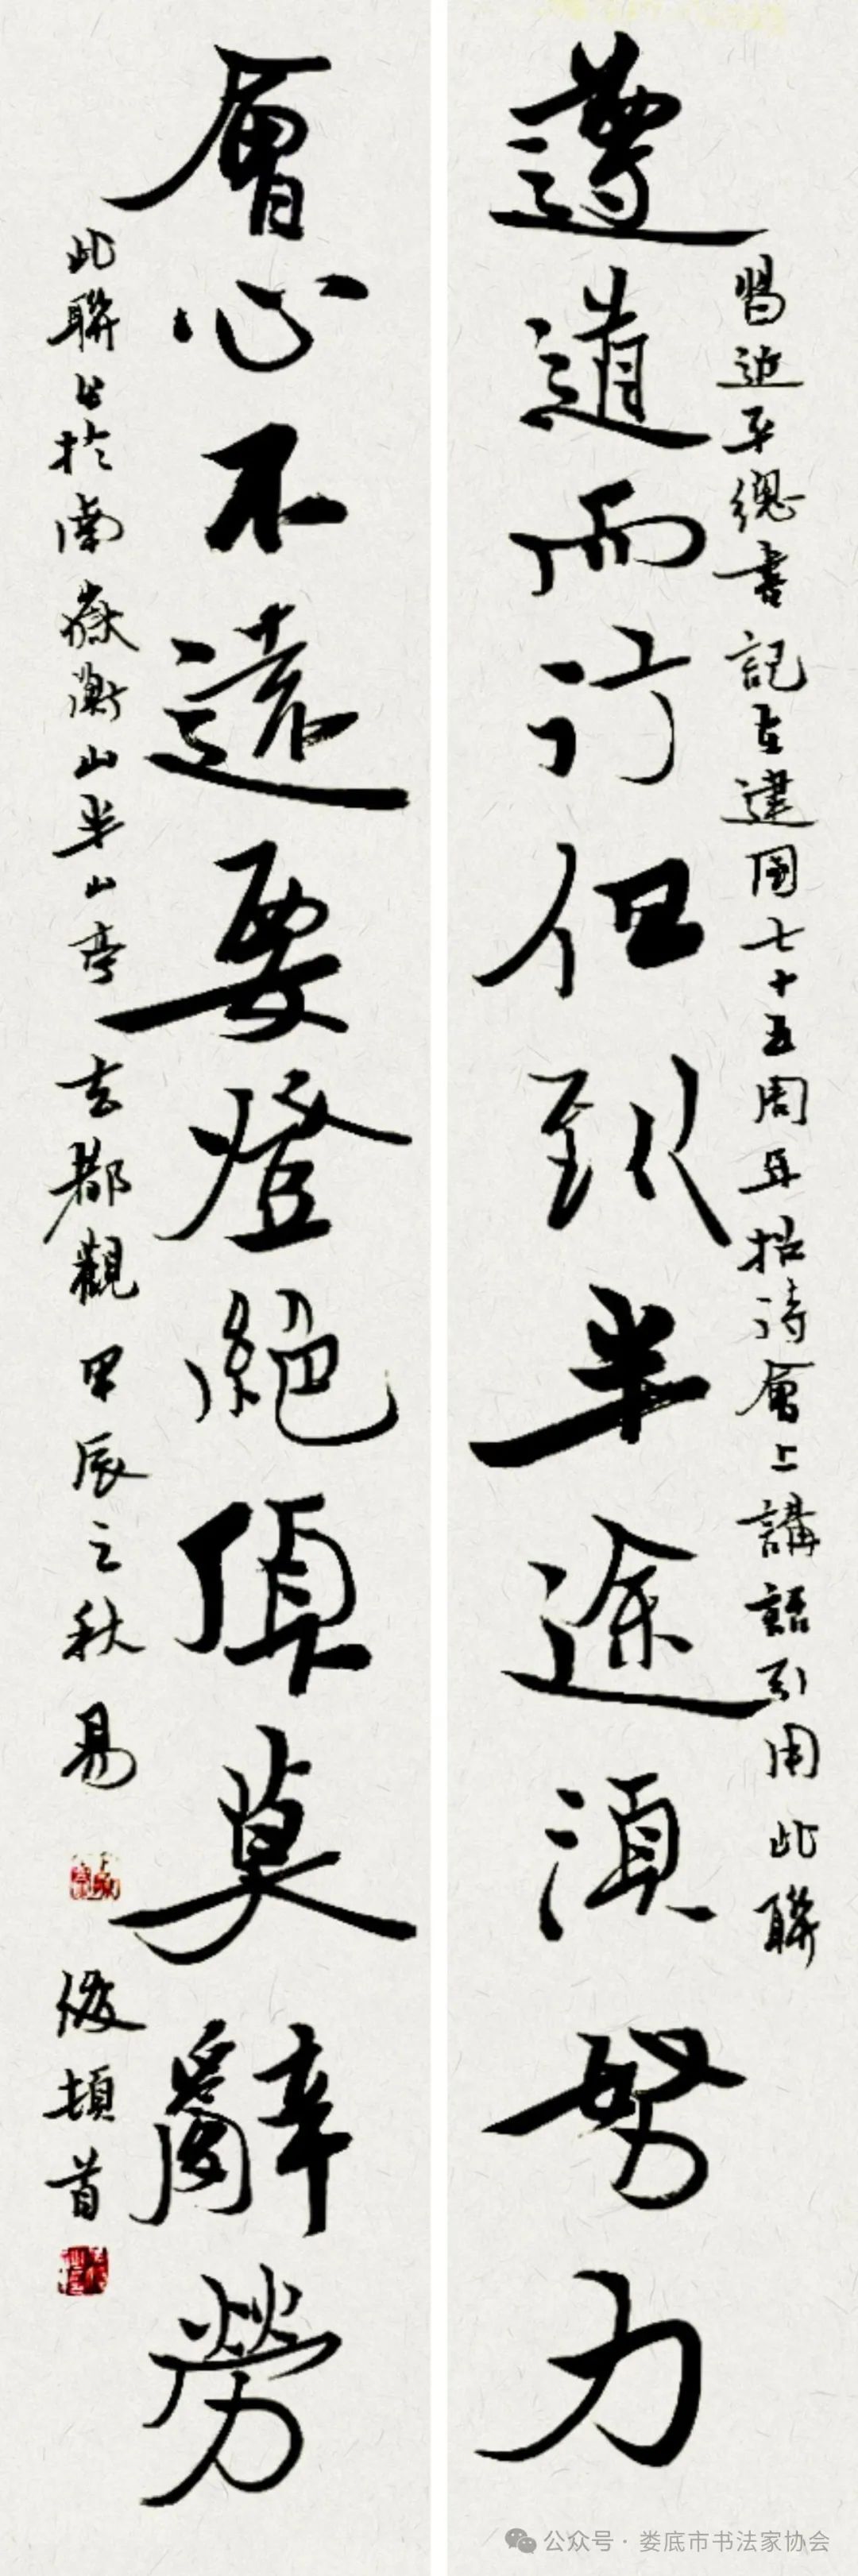 習近平總書記在建國七十五周年招待會上講話引用此聯
遵道而行但到半途須努力
會心不遠要登絕頂莫辭勞
此聯出於南嶽衡山半山亭玄都觀甲辰之秋易俊頓首
公众号·娄底市书法家协会